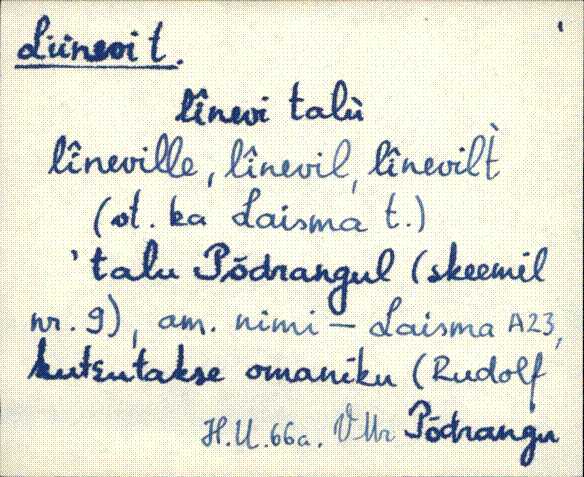 Liinevi t.
lînevi talù
lîneville, lînevil, lînevilt̀
(vt. ka Laisma t.)
'talu Põdrangul (skeemil
nr. 9), am. nimi – Laisma A23,
kutsutakse omaniku (Rudolf
H.U. 66a. VMr Põdrangu